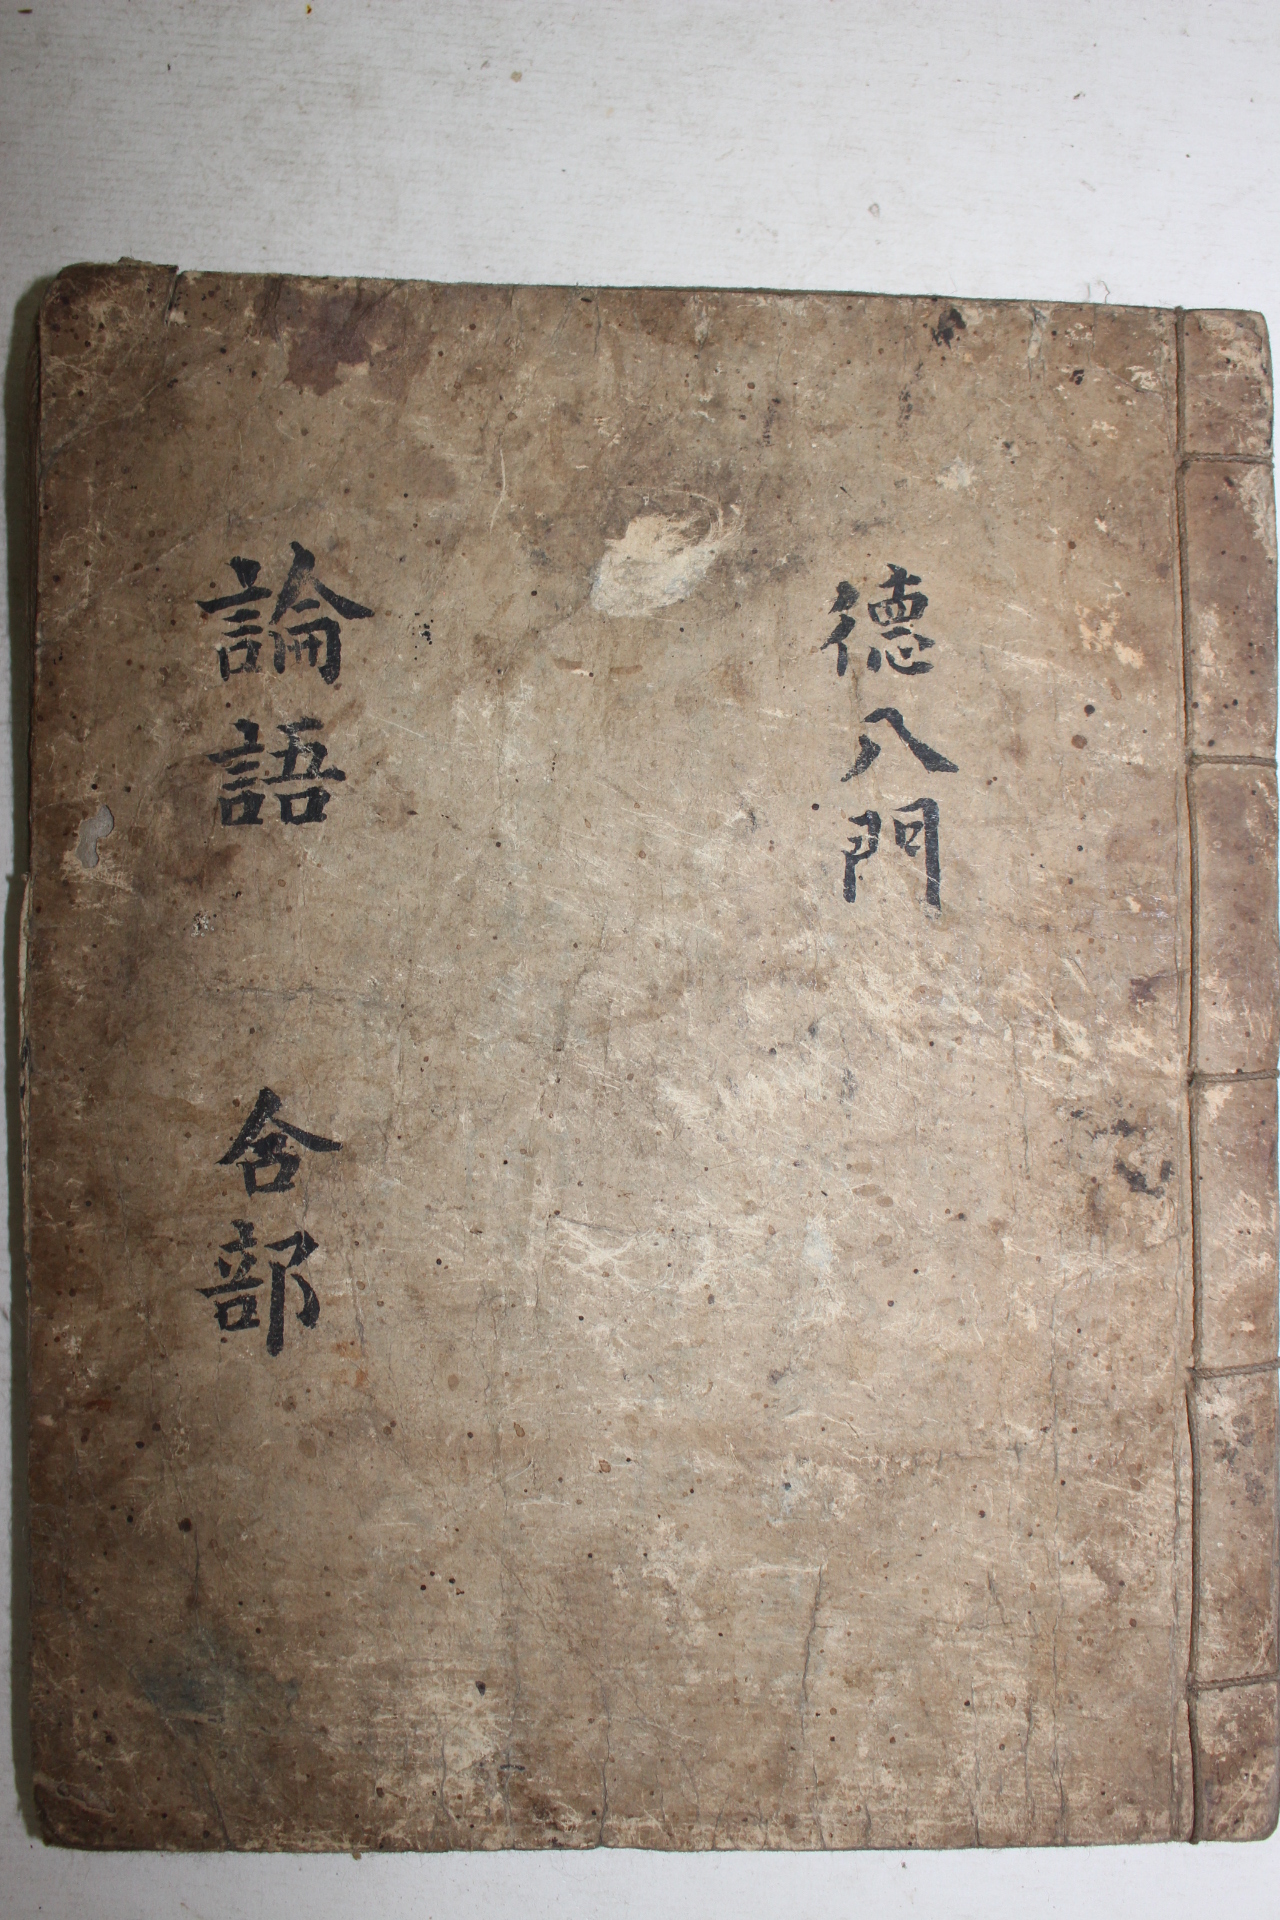 德八門
論語 合部